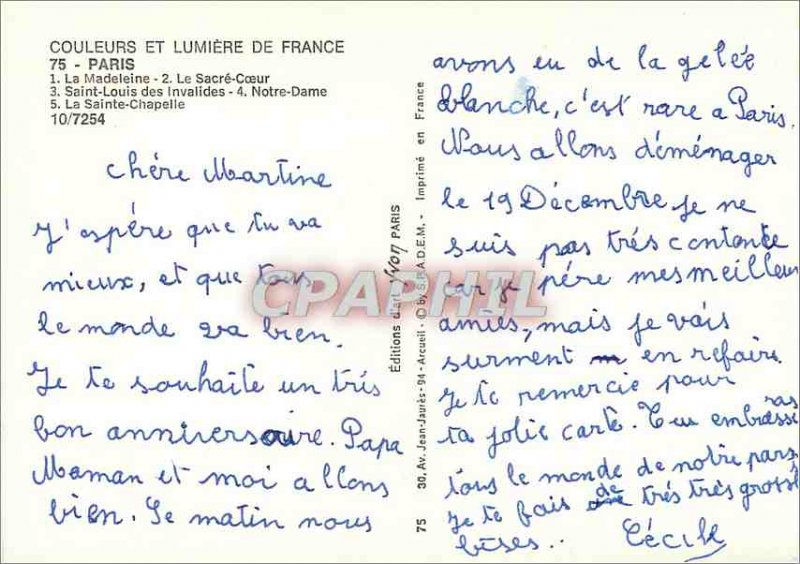 COULEURS ET LUMIÈRE DE FRANCE
75 - PARIS
1. La Madeleine - 2. Le Sacré-Cœur
3. Saint-Louis des Invalides - 4. Notre-Dame
5. La Sainte-Chapelle
10/7254
chére Martine
J'espére que tu va
mieux, et que tous
le monde va bien.
Je te souhaite un trés
bon anniversaire. Papa
Maman et moi allons
bien. Se matin nous
Editions d'art YVON PARIS
75 30, Av. Jean-Jaurès - 94 - Arcueil - © by S.P.A.D.E.M. - Imprimé en France
avons eu de la gelée
blanche, c'est rare a Paris.
Nous allons déménager
le 19 Décembre je ne
suis pas trés contente
car je pére mes meilleur
amies, mais je vais
surment en refaire
Je te remercie pour
ta jolie carte. Tu embrasseras
tous le monde de notre pars
Je te fais de trés trés grosse
bises..
Cécile
CPAPHIL